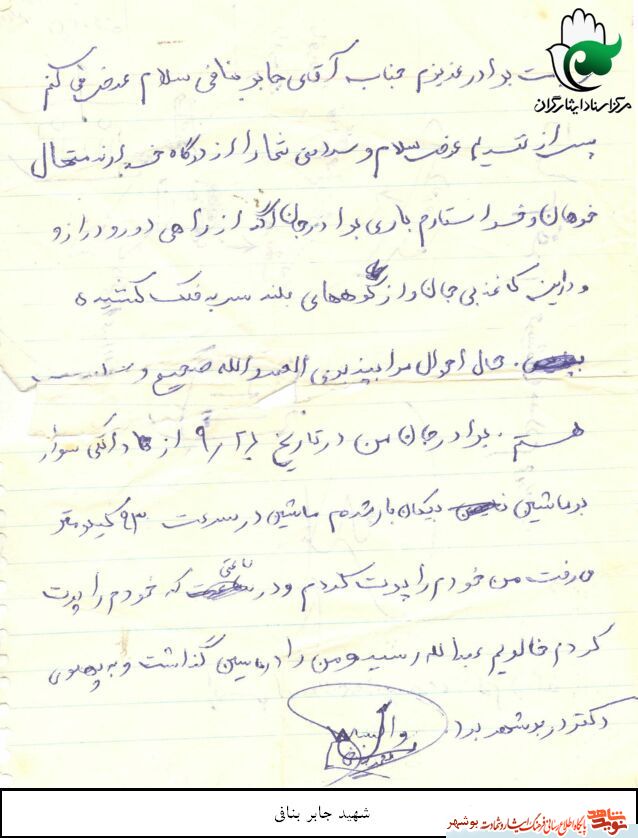 مرکز اسناد ایثارگران
برادر عزیزم جناب آقای جابر بنافی سلام عرض می کنم
پس از تقدیم عرض سلام و سلامتی شما را از درگاه خداوند متعال
خواهان و خواستارم باری برادر جان اگر از راهی دور و دراز و
و در این کاغذ بی جان و از کوههای بلند سر به فلک کشیده
حال احوال مرا بپذیری الحمدوالله صحیح و
هستم . برادر جان من در تاریخ ۹/۲۱ از سوار
بر ماشین پیکان بار شدم ماشین در سرعت ۹۳ کیلومتر
می رفت من خودم را پرت کردم و در که خودم را پرت
کردم خالویم عبدالله رسید و من را در ماشین گذاشت و به پهلوی
دکتر در بوشهر برد. والسلام
شهید جابر بنافی
نوید شاهد
پایگاه اطلاع رسانی فرهنگ ایثار و شهادت بوشهر